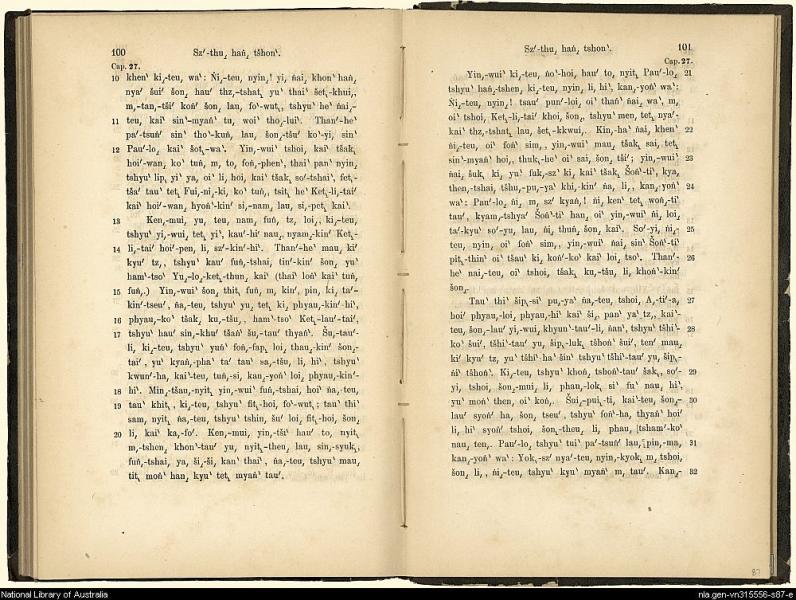 100 Sz′-thu, haṅ, tšhoṅˋ.
Cap. 27.
10 khenˋ ki,-teu, waˋ: Ṅi,-teu, nyin,! yi, ṅai, khonˋ haṅ,
nya′ šui′ šoṅ, hau′ thz,-tshat, yuˋ thaiˋ šet,-khui,,
m,-tan,-tši′ koṅ′ šoṅ, lau, foˋ-wut,, tshyuˋ heˋ ṅai,-
11 teu, kaiˋ sinˋ-myaṅˋ tu, woiˋ tho,-lui′. Than′-he′
pa′-tsuṅ′ sinˋ thoˋ-kuṅ, lau, šoṅ,-tšu′ koˋ-yi, sinˋ
12 Pau′-lo, kaiˋ šot,-waˋ. Yin,-wui′ tshoi, kaiˋ tšak,
hoi′-wan, koˋ tuṅ, m, to, foṅ,-phenˋ, thaiˋ panˋ nyin,
tshyuˋ lip, yiˋ ya, oiˋ li, hoi, kaiˋ tšak, so′-tshaiˋ, fet,-
tšaˋ tauˋ tet, Fui,-ni,-ki, koˋ tuṅ,, tsit, heˋ Ket,-li,-tai′
kaiˋ hoi′-wan, hyoṅˋ-kin′ si,-nam, lau, si,-pet, kaiˋ.
13 Ken,-mui, yu, teu, nam, fuṅ, tz, loi,, ki,-teu,
tshyuˋ yi,-wui, tet, yiˋ, kau′-hi′ nau, nyam,-kin′ Ket,-
14 li,-tai′ hoi′-pen, li, sz′-kin′-hiˋ. Than′-heˋ mau, ki′
kyu′ tz,, tshyuˋ kau′ fuṅ,-tshai, tin′-kin′ šoṅ, yuˋ
hamˋ-tsoˋ Yu,-lo,-ket,-thun, kaiˋ (thaiˋ loṅˋ kaiˋ tuṅ,
15 fuṅ,.) Yin,-wuiˋ šoṅ, thit, fuṅ, m, kin′, pin, ki, ta′-
kin′-tseu′, ṅa,-teu, tshyuˋ yu, tet, ki, phyau,-kin′-hiˋ,
16 phyau,-koˋ tšak, ku,-tšu,, hamˋ-tsoˋ Ket,-lau′-tai′,
17 tshyuˋ hau′ sin,-khu′ tšaṅˋ šu,-tau′ thyaṅˋ. Šu,-tau′-
li, ki,-teu, tshyuˋ yuṅˋ foṅ,-fap, loi, thau,-kin′ šoṅ,-
tai′, yuˋ kyaṅ,-phaˋ ta′ tauˋ sa,-tšu, li, hiˋ, tshyuˋ
kwun′-ha, kaiˋ-teu, tuṅ,-si, kaṅ,-yoṅˋ loi, phyau,-kin′-
18 hiˋ. Min,-tšau,-nyit, yin,-wuiˋ fuṅ,-tshai, hoiˋ ṅa,-teu,
19 tauˋ khit,, ki,-teu, tshyuˋ fit,-hoi, foˋ-wut,; tauˋ thiˋ
sam, nyit, ṅa,-teu, tshyuˋ tshin, šu′ loi, fit,-hoi, šoṅ,
20 li, kaiˋ ka,-fo′. Ken,-mui, yin,-tšiˋ hau′ to, nyit,
m,-tshen, khonˋ-tau′ yu, nyit,-theu, lau, sin,-syuk,,
fuṅ,-tshai, ya, ši,-ši, kanˋ thaiˋ, ṅa,-teu, tshyuˋ mau,
tit, moṅˋ han, kyuˋ tet, myaṅˋ tau′.
Sz′-thu, haṅ, tshoṅˋ. 101
Cap. 27.
Yin,-wuiˋ ki,-teu, ṅoˋ-hoi, hau′ to, nyit, Pau′-lo, 21
tshyuˋ haṅ,-tshen, ki,-teu, nyin, li, hiˋ, kaṅ,-yoṅˋ waˋ:
Ṅi,-teu, nyin,! tsau′ punˋ-loi, oiˋ thaṅˋ ṅai, waˋ, m,
oiˋ tshoi, Ket,-li,-tai′ khoi, šoṅ,, tshyuˋ men, tet, nya′-
kaiˋ thz,-tshat, lau, šet,-kkwui,. Kin,-haˋ ṅai, khenˋ 22
ṅi,-teu, oiˋ foṅˋ sim,, yin,-wuiˋ mau, tšak, sai, tet,
sinˋ-myaṅˋ hoi,, thuk,-heˋ oiˋ sai, šoṅ, tši′; yin,-wuiˋ 23
ṅai, šuk, ki, yuˋ fuk,-szˋ ki, kaiˋ tšak, Šoṅˋ-tiˋ, kya,
then,-tshai, tšhu,-pu,-yaˋ khi-kin′ ṅa, li,, kaṅ,-yoṅˋ 24
waˋ: Pau′-lo, ṅi, m, sz′ kyaṅ,! ṅi, kenˋ tet, woṅ,-tiˋ
tau′, kyam,-tshya′ Šoṅˋ-tiˋ han, oiˋ yin,-wuiˋ ṅi, loi,
ta′-kyuˋ so′-yu, lau, ṅi, thuṅ, šoṅ, kaiˋ. So′-yi, ṅi,- 25
teu, nyin, oiˋ foṅˋ sim,, yin,-wuiˋ ṅai, sinˋ Šoṅˋ-tiˋ
pit,-thinˋ oiˋ tšauˋ ki, koṅ′-koˋ kaiˋ loi, tsoˋ. Than′- 26
heˋ ṅai,-teu, oiˋ tshoi, tšak, ku,-tšu, li, khoṅˋ-kin′
šoṅ,.
Tauˋ thiˋ šip,-siˋ pu,-yaˋ ṅa,-teu, tshoi, A,-ti′-a, 27
hoi′ phyau,-loi, phyau,-hiˋ kaiˋ ši,, panˋ yaˋ tz,, kaiˋ-
teu, šoṅ,-lau′ yi,-wui, khyun,ˋ-tauˋ-li, ṅan′, tshyuˋ tšhiˋ- 28
koˋ šui′, tšhiˋ-tauˋ yu, šip,-luk, tšhoṅˋ šui′, ten′ mau,
ki′ kyu′ tz, yuˋ tšhiˋ-haˋ šinˋ tshyuˋ tšhiˋ-tauˋ yu, šip,-
ṅiˋ tšhoṅˋ. Ki,-teu, tshyuˋ khoṅ, tshonˋ-tauˋ šak,, so′- 29
yi, tshoi, šoṅ,-mui, li, phau,-lok, siˋ fuˋ nau, hiˋ,
yuˋ moṅˋ then, oiˋ koṅ,. Šui,-pui,-ti, kaiˋ-teu, šoṅ,- 30
lau′ syoṅ′ ha, šoṅ, tseuˋ, tshyuˋ foṅˋ-ha, thyaṅˋ hoi′
li, hiˋ syoṅ′ tshoi, šoṅ,-theu, li, phau, (tsham′-koˋ
nau, ten,. Pau′-lo, tshyuˋ tuiˋ pa′-tsuṅ′ lau, pin,-ma, 31
kaṅ,-yoṅˋ waˋ: Yok,-sz′ nya′-teu, nyin,-kyok, m, tshoi,
šoṅ, li,, ṅi,-teu, tshyuˋ kyuˋ myaṅˋ m, tau′. Kaṅ,- 32
87
National Library of Australia
nla.gen-vn315556-s87-e